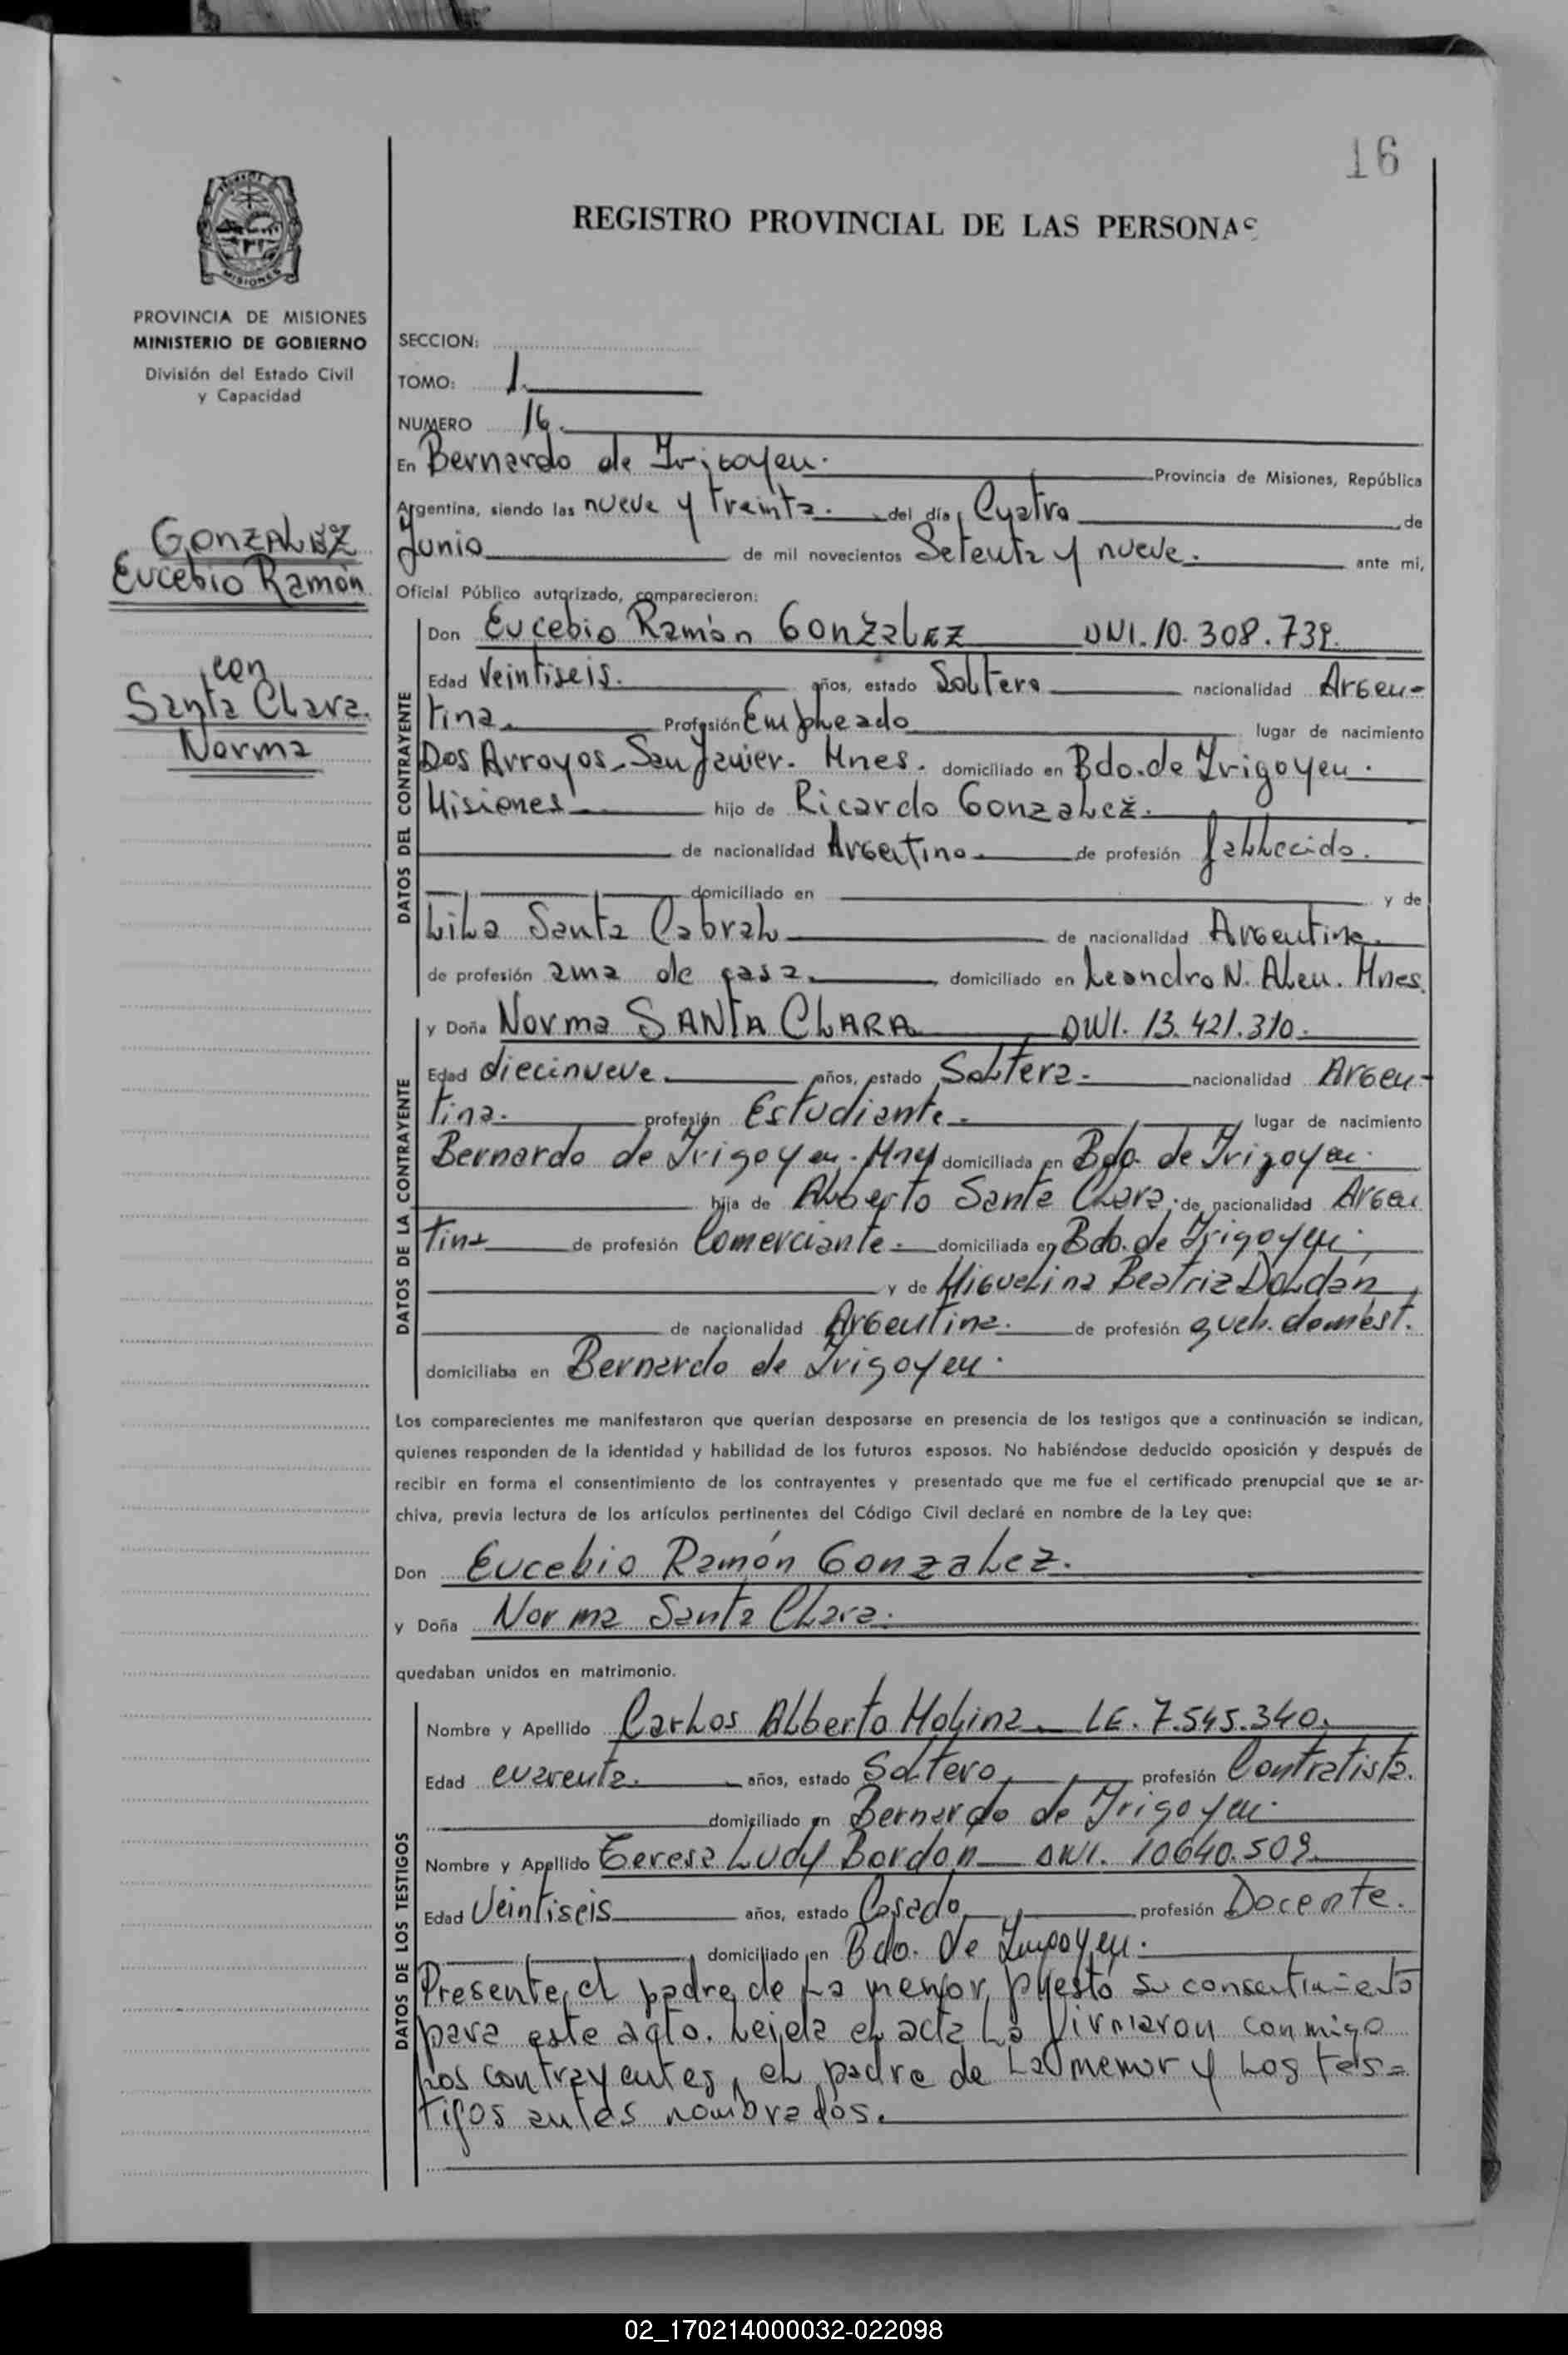 16
REGISTRO PROVINCIAL DE LAS PERSONAS
MISIONES
PROVINCIA DE MISIONES
MINISTERIO DE GOBIERNO
División del Estado Civil
y Capacidad
SECCION:
TOMO: 1.
NUMERO 16.
En Bernardo de Irigoyen. Provincia de Misiones, República
Argentina, siendo las nueve y treinta. del día Cuatro de
Junio de mil novecientos Setenta y nueve. ante mi,
Oficial Público autorizado, comparecieron:
GONZALEZ
Eucebio Ramón
con
Santa Clara.
Norma
DATOS DEL CONTRAYENTE
Don Eucebio Ramón GONZALEZ DNI. 10.308.739.
Edad Veintiseis. años, estado Soltero nacionalidad Argen-
tina. Profesión Empleado lugar de nacimiento
Dos Arroyos-San Javier. Mnes. domiciliado en Bdo. de Irigoyen.
Misiones hijo de Ricardo Gonzalez.
de nacionalidad Argentino de profesión fallecido.
domiciliado en y de
Lila Santa Cabral de nacionalidad Argentina.
de profesión ama de casa. domiciliado en Leandro N. Alen. Mnes.
DATOS DE LA CONTRAYENTE
y Doña Norma SANTA CLARA DNI. 13.421.310.
Edad diecinueve. años, estado Soltera. nacionalidad Argen-
tina. profesión Estudiante. lugar de nacimiento
Bernardo de Irigoyen. Mnes domiciliada en Bdo. de Irigoyen.
hija de Alberto Santa Clara. de nacionalidad Argen
tina de profesión Comerciante. domiciliada en Bdo. de Irigoyen.
y de Miguelina Beatriz Doldán,
de nacionalidad Argentina. de profesión queh. domést.
domiciliaba en Bernardo de Irigoyen.
Los comparecientes me manifestaron que querían desposarse en presencia de los testigos que a continuación se indican,
quienes responden de la identidad y habilidad de los futuros esposos. No habiéndose deducido oposición y después de
recibir en forma el consentimiento de los contrayentes y presentado que me fue el certificado prenupcial que se ar-
chiva, previa lectura de los artículos pertinentes del Código Civil declaré en nombre de la Ley que:
Don Eucebio Ramón Gonzalez.
y Doña Norma Santa Clara.
quedaban unidos en matrimonio.
DATOS DE LOS TESTIGOS
Nombre y Apellido Carlos Alberto Molina. LE. 7.545.340.
Edad cuarenta. años, estado Soltero profesión Contratista.
domiciliado en Bernardo de Irigoyen.
Nombre y Apellido Teresa Ludy Bordón DNI. 10640.509.
Edad Veintiseis años, estado Casado profesión Docente.
domiciliado en Bdo. de Irigoyen.
Presente el padre de la menor, presto su consentimiento
para este acto. Leida el acta la firmaron conmigo
los contrayentes, el padre de la menor y los tes=
tigos antes nombrados.
02_170214000032-022098